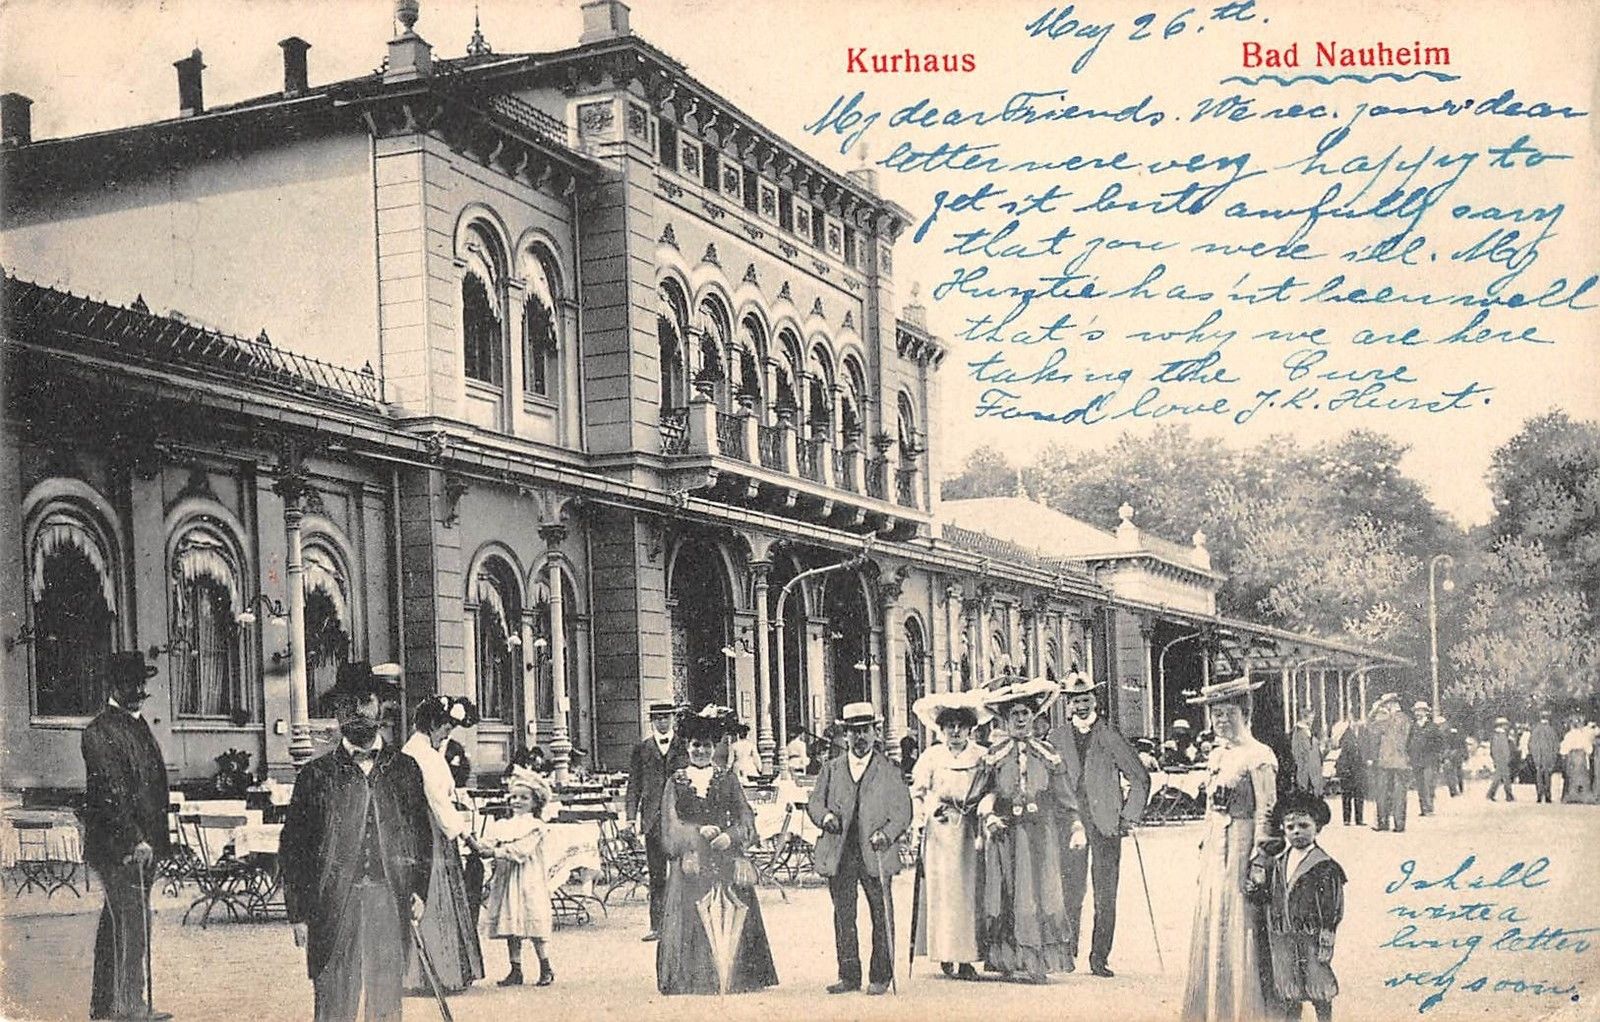 May 26.th.
Kurhaus Bad Nauheim
My dear Friends. We rec. your dear
letter were very happy to
get it but awfully sorry
that you were ill. My
Huntie has'nt been well
that's why we are here
taking the Cure
Fond love J.K. Hurst.
I shall
write a
long letter
very soon.